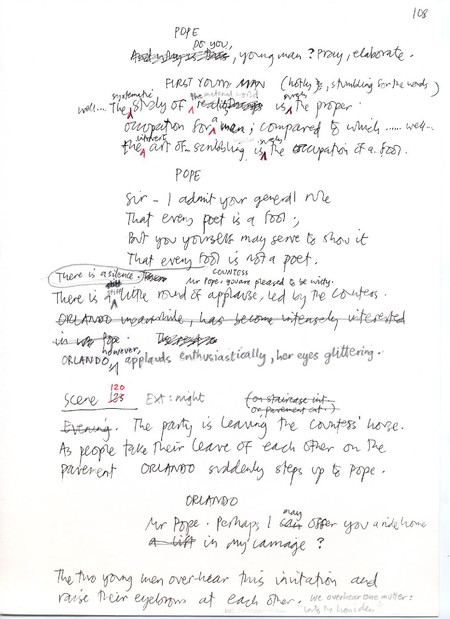 108
POPE
DO YOU,
And why is this, young man? Pray, elaborate.
FIRST YOUNG MAN (hotly, stumbling for the words)
systematic the material world surely
well... The study of reality is the proper
a
occupation for men; compared to which ...... well...
surely
the art of scribbling is the occupation of a fool.
POPE
Sir - I admit your general rule
That every poet is a fool;
But you yourself may serve to show it
That every fool is not a poet.
There is a silence. COUNTESS
Mr Pope. You are pleased to be witty.
There is a little round of applause, led by the Countess.
ORLANDO meanwhile, has become intensely interested
in Pope.
however,
ORLANDO applauds enthusiastically, her eyes glittering.
120
Scene 123 EXT: night (on staircase int.
or pavement ext.)
Evening. The party is leaving the Countess' house.
As people take their leave of each other on the
pavement ORLANDO suddenly steps up to Pope.
ORLANDO
may
Mr Pope. Perhaps I can offer you a ride home
a lift in my carriage?
The two young men overhear this invitation and
raise their eyebrows at each other. We overhear one mutter: